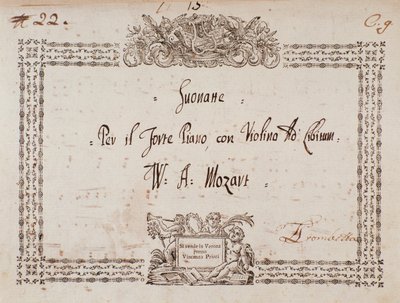 1 13
# 22.
C. 9
= Suonate =
= Per il Forte Piano con Violino Ad Libitum =
W: A: Mozart
=
Si vende in Verona
presso
Vincenzo Pozzi
Trombetta